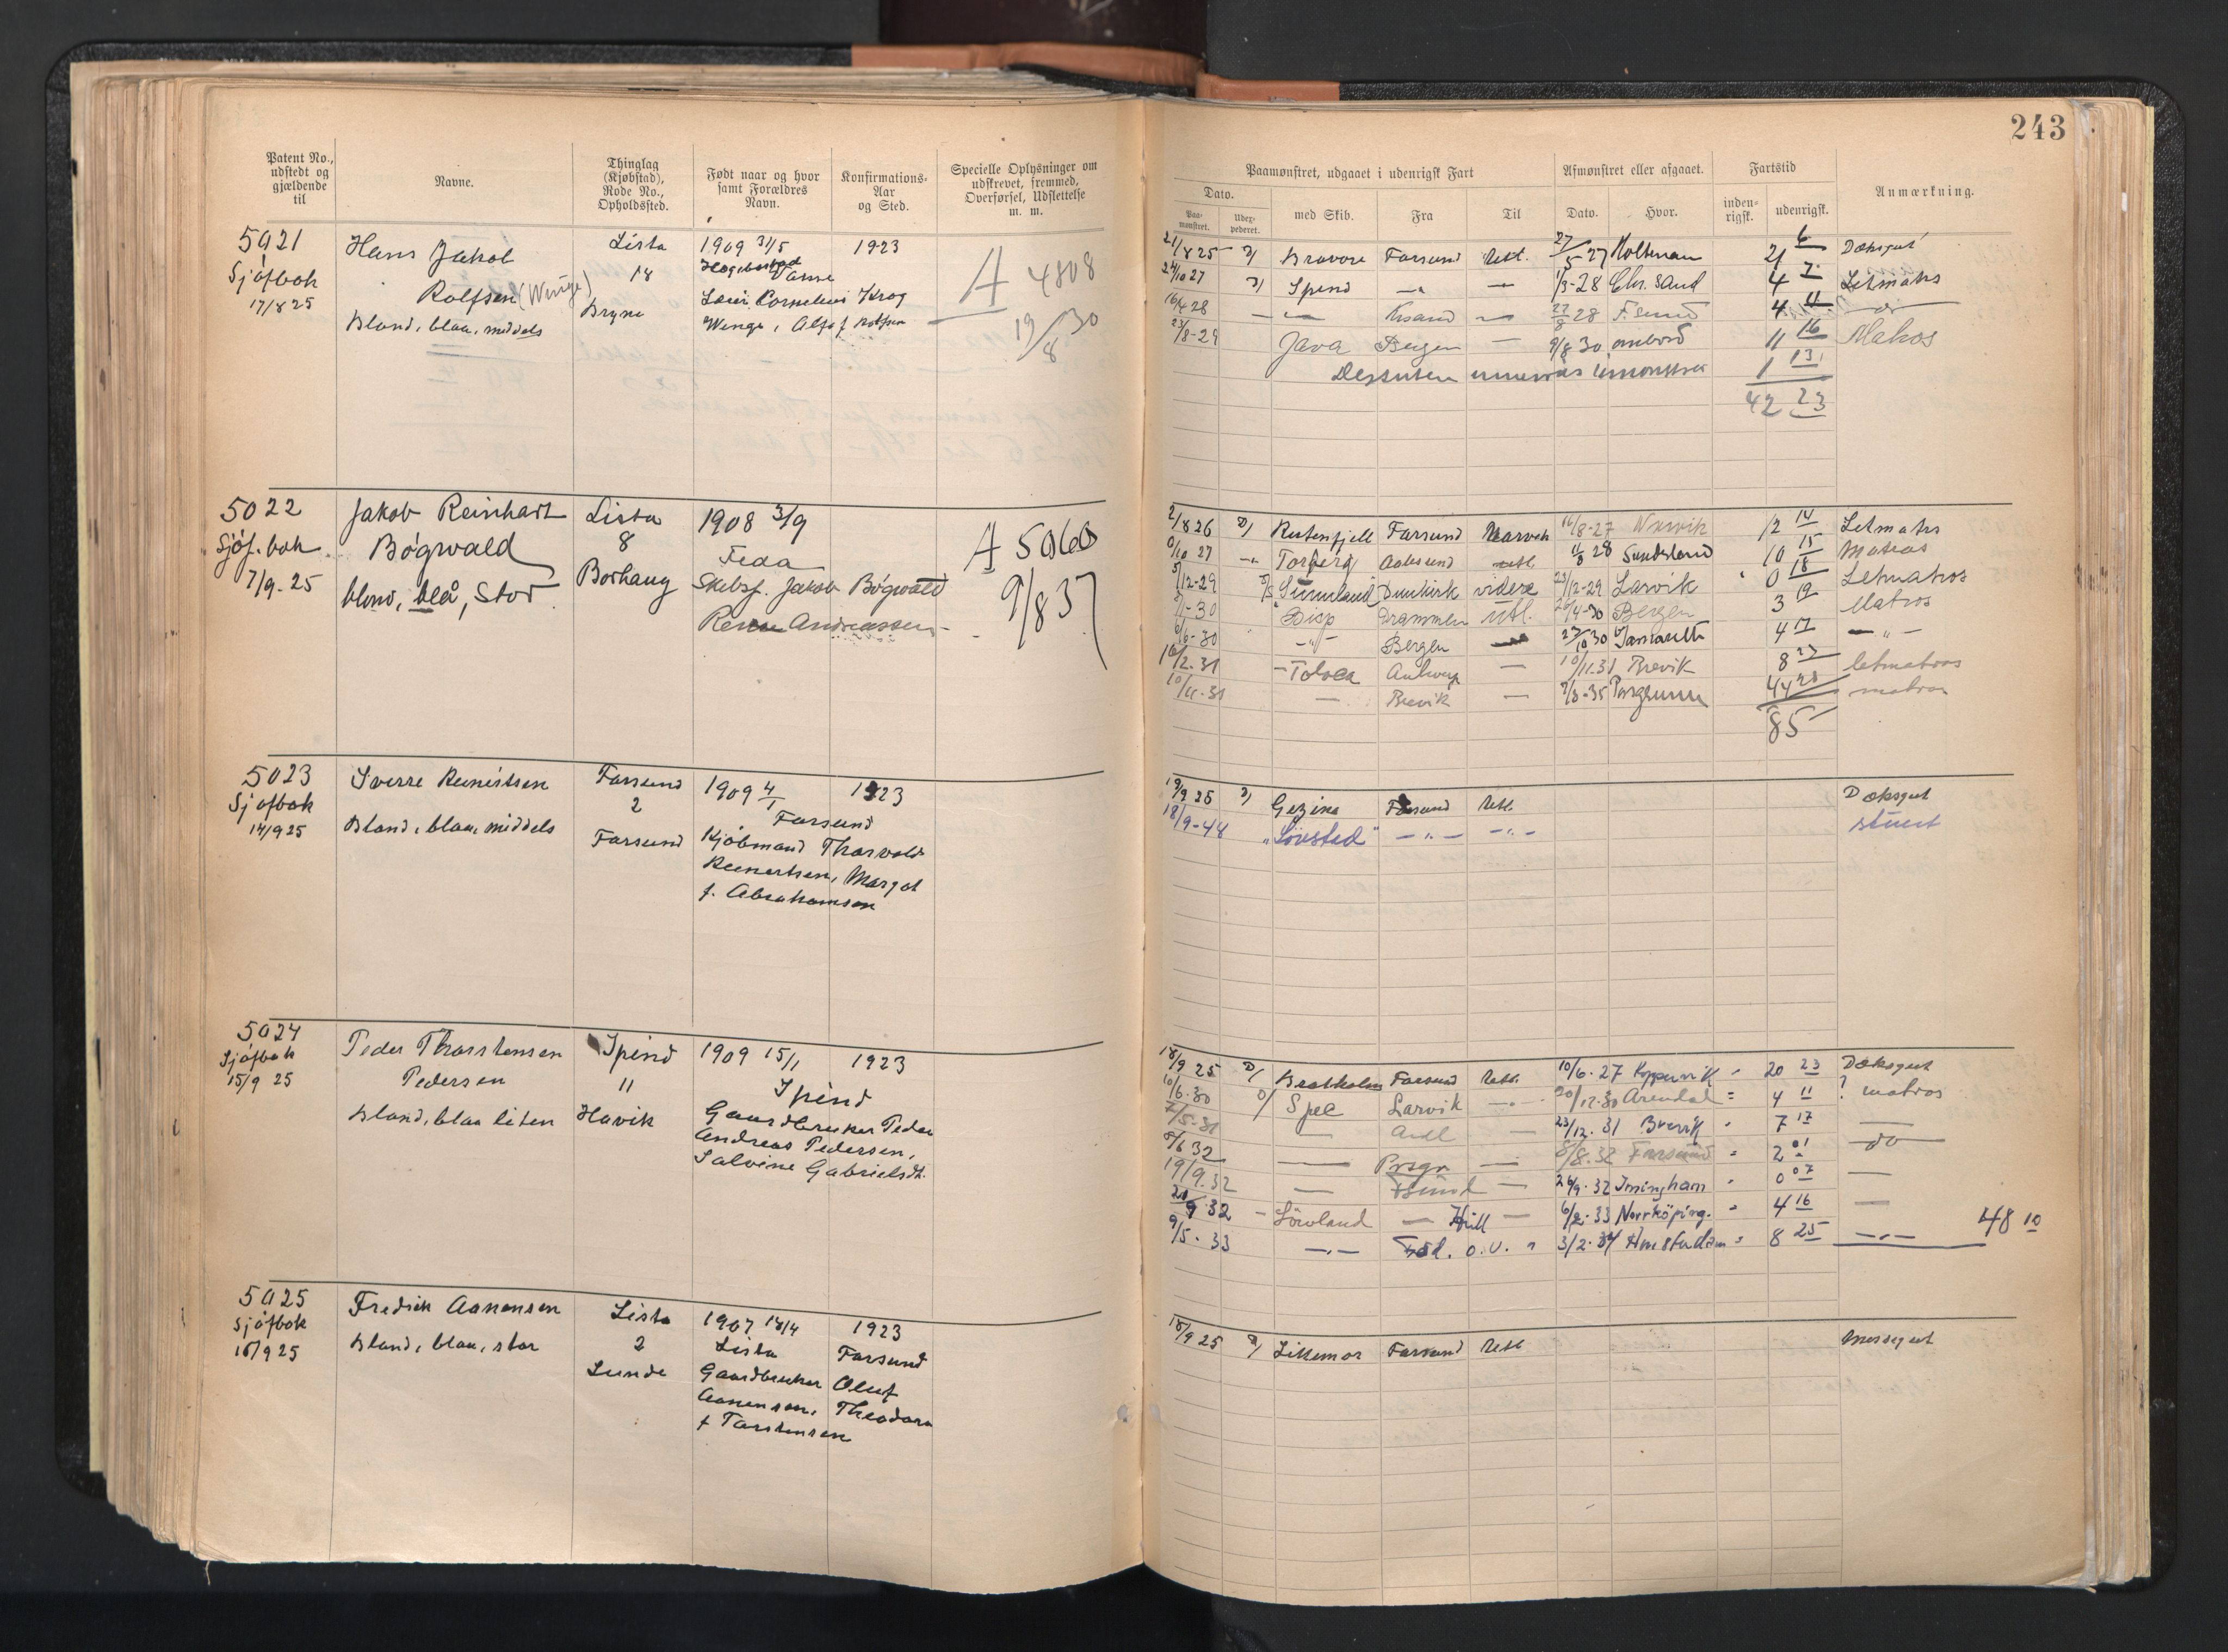 243
Patent No., udstedt og gjældende til
Navne.
Thinglag (Kjøbstad), Rode No., Opholdssted.
Født naar og hvor samt Forældres Navn.
Konfirmations-Aar og Sted.
Specielle Oplysninger om udskrevet, fremmed, Overførsel, Udslettelse m. m.
Paamønstret, udgaaet i udenrigsk Fart
Afmønstret eller afgaaet.
Fartstid
Anmærkning.
Dato.
Paa-mønstret.
Udex-pederet.
med Skib.
Fra
Til
Dato.
Hvor.
inden-rigsk.
udenrigsk.
5021
Sjøfbok
17/8 25
Hans Jakob
Rolfsen (Winge)
Blond, blaa, middels
Lista
18
Bryne
1909 31/5
1923
Wenge, f. Rolfsen
A 4808
19/8 30
21/8 25 Bravore Farsund Utl. 27/5 27 Holtenau 21 6 Dæksgut
24/10 27 Spind 1/3-28 Chr. Sand 4 7 Letmatrs
16/4 28 Krsand 27/8 28 F.sund 4 11 do
23/8-29 Java Bergen — 9/8 30 ombord 11 16 Matros
Dessuten
1 13
42 23
5022
Sjøf. bok
7/9-25
Jakob Reinhart
Bøgwald
blond, blå, stor
Lista
8
Borhaug
1908 3/9
Feda
Skibsf. Jakob Bøgwald
Andreassen
A 5060
9/8 37
2/8 26 Rutenfjell Farsund Narvik 16/8-27 Narvik 12 14 Letmatrs
27 Torberg Aalesund utl 28 Sunderland 10 15 Matros
12-29 Sunnland Dunkirk videre 23/12-29 Larvik 0 18 Letmatros
30 Disp Drammen Utl. 4-30 Bergen 3 19 Matros
6-30 -"- Bergen 30 4 17 -"-
16/2.31 Toloca Antwerp — 10/11.31 Brevik 8 23 letmatros
10/11-31 — Brevik — 7/8-35 Porsgrunn 44 28 matros
85
5023
Sjøfbok
14/9 25
Sverre Reinertsen
Blond, blaa, middels
Farsund
2
Farsund
1909 4/1
1923
Farsund
Kjøbmand Thorvald
Reinertsen, Margot
f. Abrahamsen
19/9 25 Gezina Farsund Utl. Dæksgut
18/9-48 "Lovstad" -"- -"- stuert
5024
Sjøfbok
15/9 25
Peder Thorstensen
Pedersen
Blond, blaa liten
Spind
11
Havik
1909 15/1
1923
Spind
Gaardbruker Peder
Andreas Pedersen,
Salvine Gabrielsdt.
18/9 25 Bratholm Farsund Utl. 10/6-27 Kopervik 20 23 Dæksgut
10/6-30 Spec Larvik -"- 20/12-30 Arendal 4 11 ? matros
7/5-31 — Andl — 23/12.31 Brevik 7 17 —
8/6 32 — Prsgr — 8/8.32 Farsund 2 01 do
19/9.32 — Fsund — 26/9.32 Imingham 0 07 —
20/9.32 - Lovland — Hull — 6/2.33 Norrköping. 4 16 —
9/5.33 -"- o.v. 3/2.34 Amsterdam 8 25 -"-
48 10
5025
Sjøfbok
16/9 25
Fredrik Aanensen
Blond, blaa, stor
Lista
2
Lunde
1907 14/4
1923
Lista
Farsund
Gaardbruker Oluf
Aanensen, Theodora
f Torstensen
18/9 25 Likemor Farsund Utl Messegut